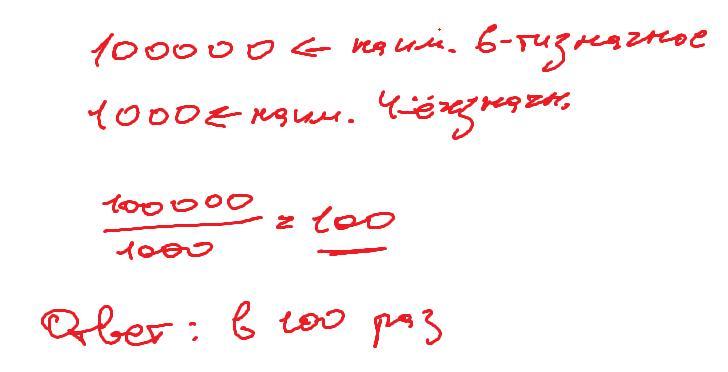 100000 ← наим. 6-тизначное
1000 ← наим. 4-ёхзначн.
100000
1000
= 100
Ответ: в 100 раз